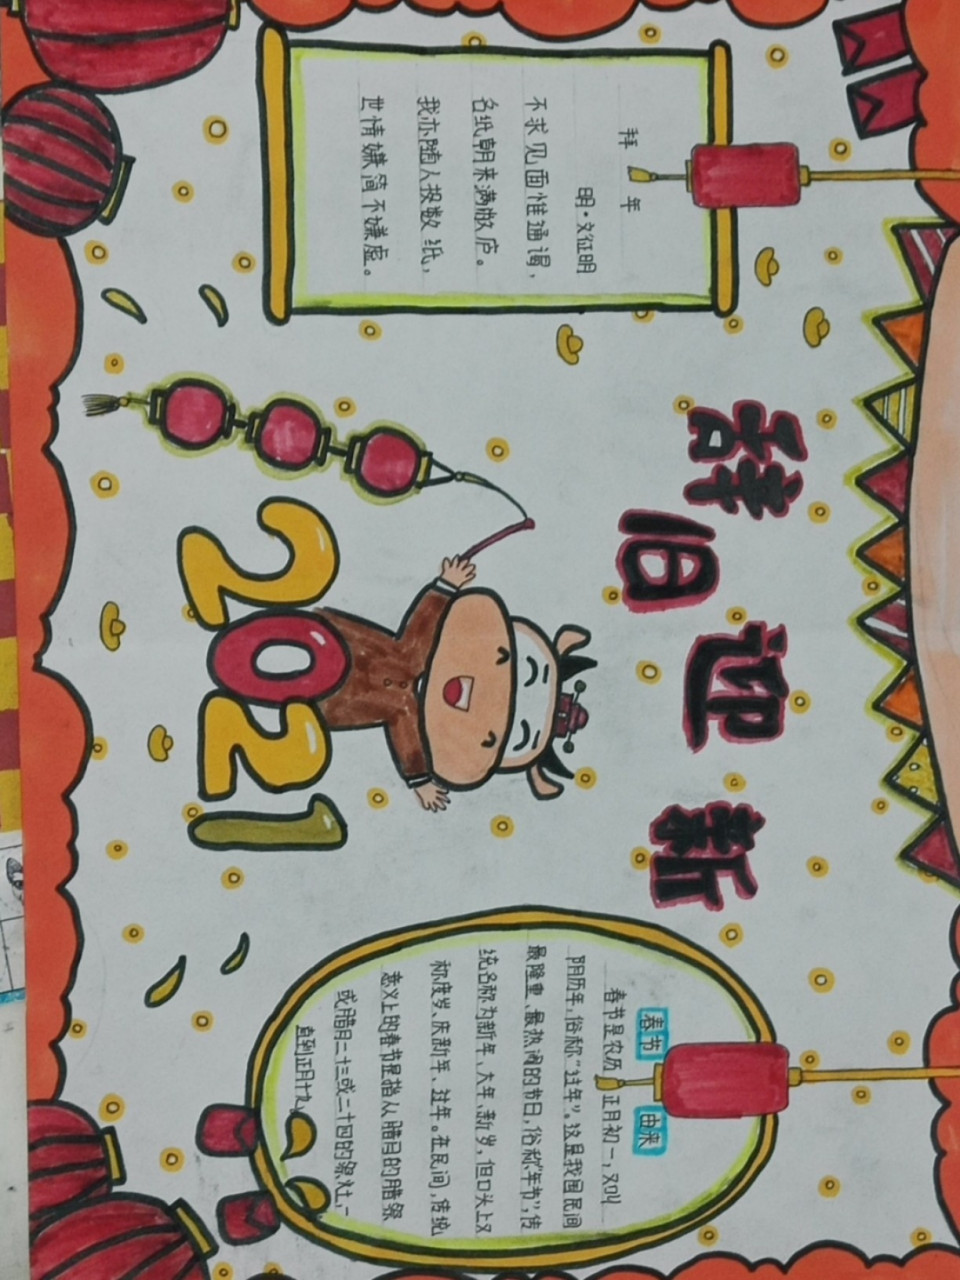 辞旧迎新
拜年
明·文征明
不求见面惟通谒，
名纸朝来满敝庐。
我亦随人投数纸，
世情嫌简不嫌虚。
2021
春节 由来
春节是农历正月初一，又叫
阴历年，俗称“过年”。这是我国民间
最隆重、最热闹的节日，俗称“年节”，传
统名称为新年、大年、新岁，但口头上又
称度岁、庆新年、过年。在民间，传统
意义上的春节是指从腊月的腊祭
或腊月二十三或二十四的祭灶，一
直到正月十九